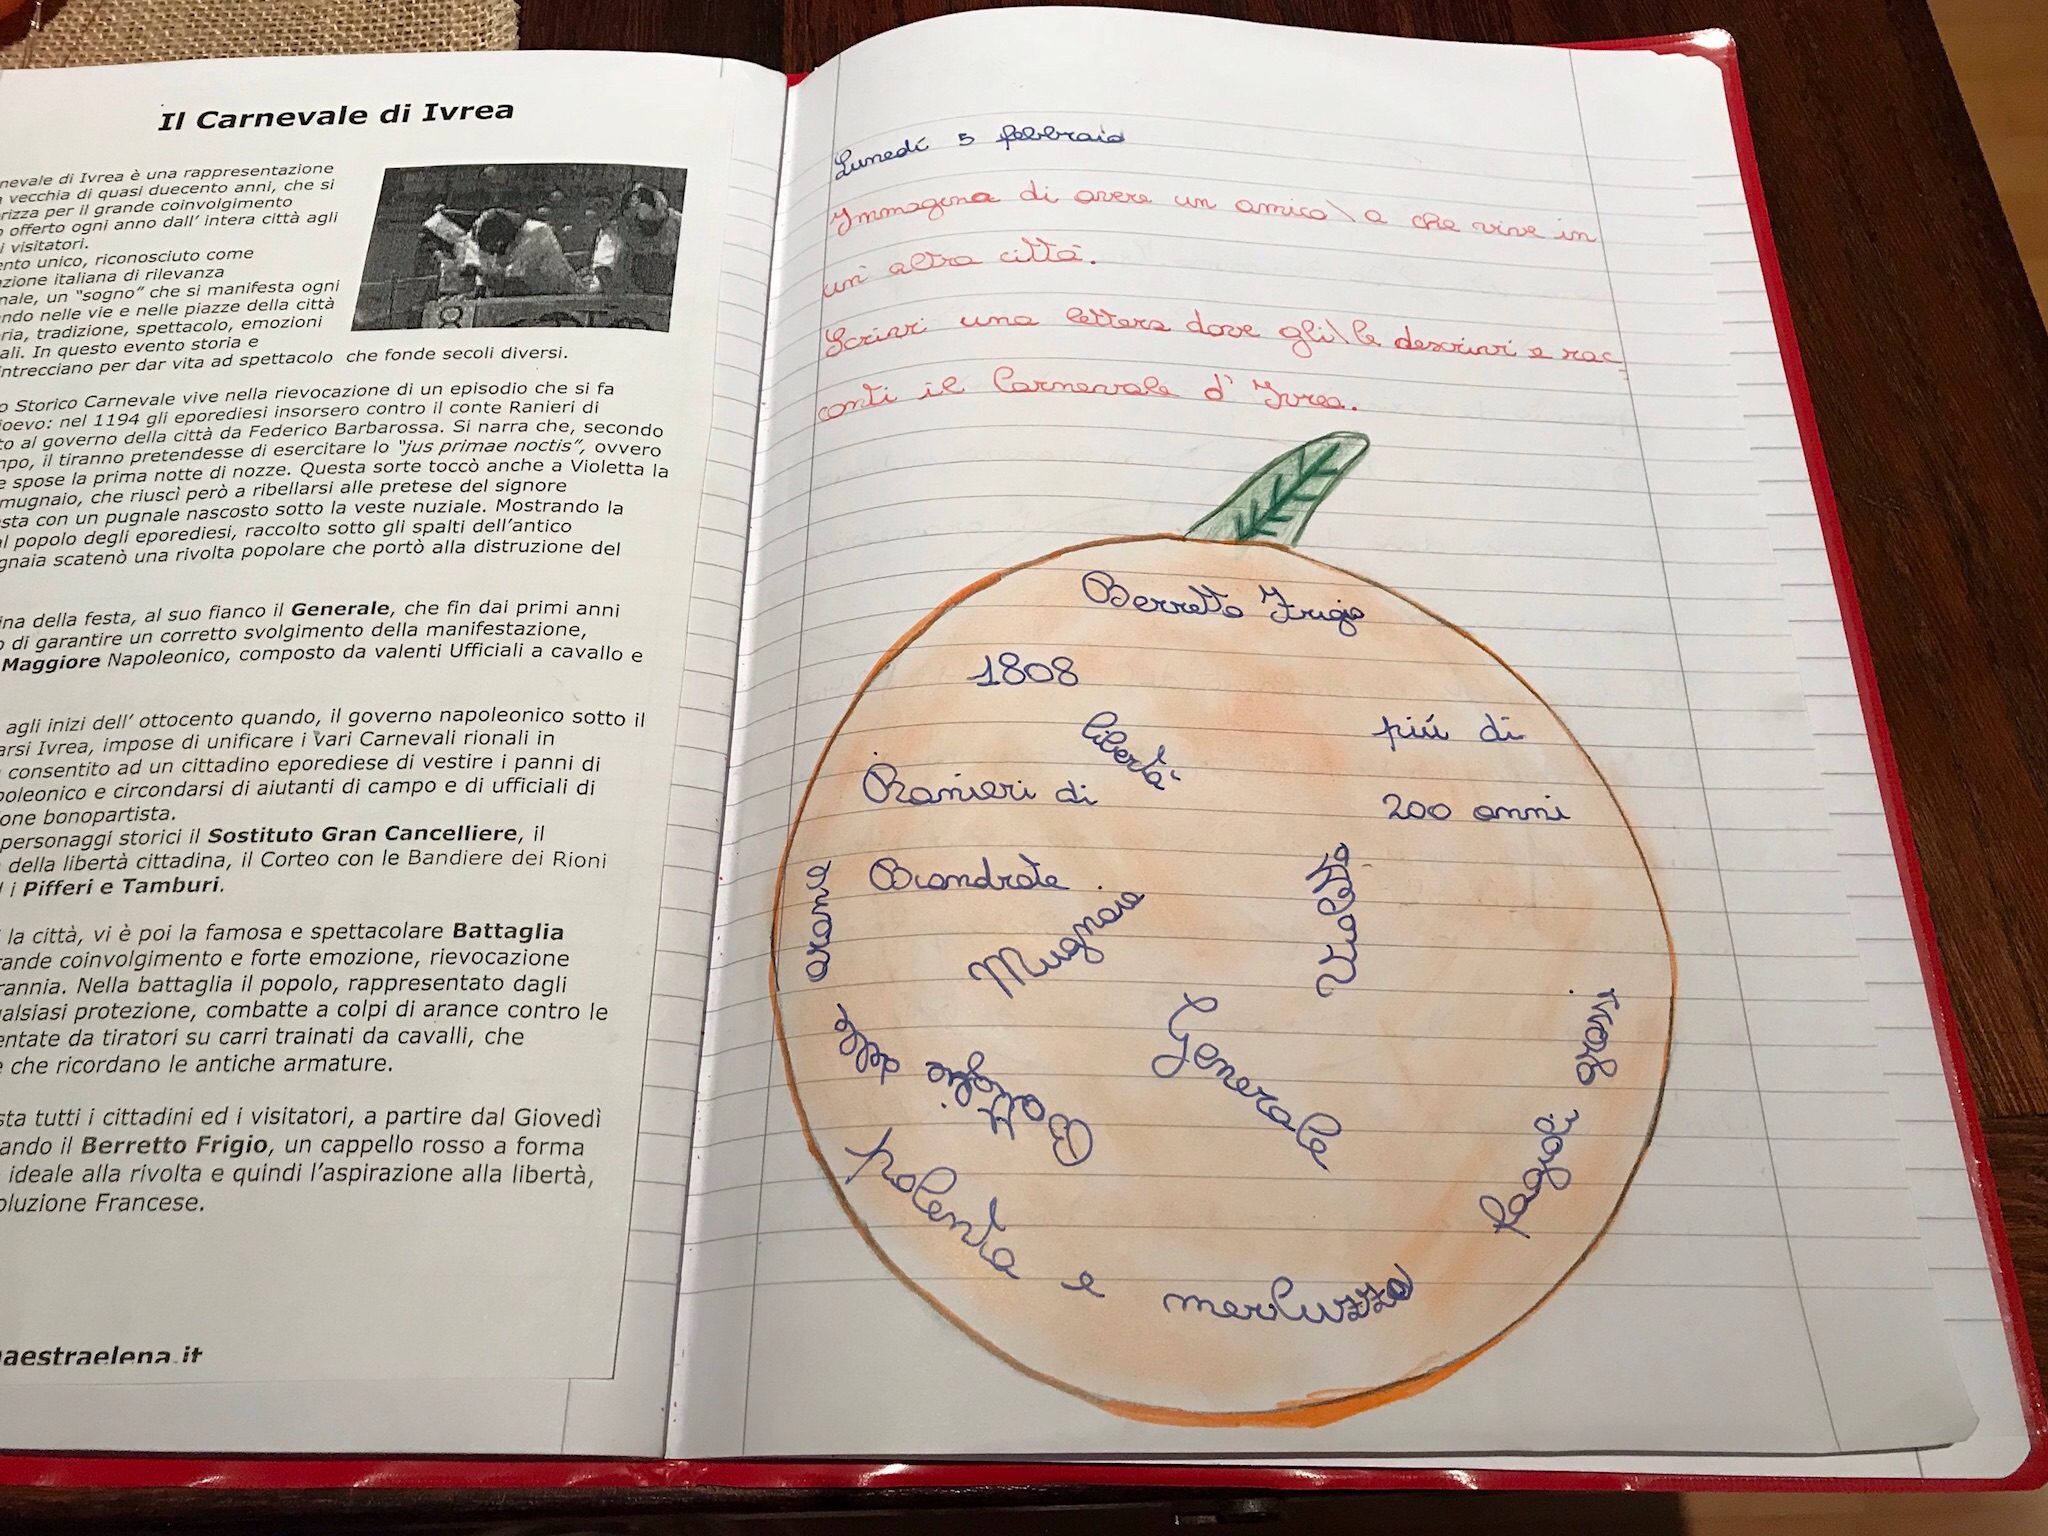 Il Carnevale di Ivrea
nevale di Ivrea è una rappresentazione
vecchia di quasi duecento anni, che si
rizza per il grande coinvolgimento
o offerto ogni anno dall' intera città agli
i visitatori.
ento unico, riconosciuto come
azione italiana di rilevanza
nale, un "sogno" che si manifesta ogni
ndo nelle vie e nelle piazze della città
ria, tradizione, spettacolo, emozioni
ali. In questo evento storia e
intrecciano per dar vita ad spettacolo che fonde secoli diversi.
o Storico Carnevale vive nella rievocazione di un episodio che si fa
ioevo: nel 1194 gli eporediesi insorsero contro il conte Ranieri di
to al governo della città da Federico Barbarossa. Si narra che, secondo
mpo, il tiranno pretendesse di esercitare lo "jus primae noctis", ovvero
e spose la prima notte di nozze. Questa sorte toccò anche a Violetta la
mugnaio, che riuscì però a ribellarsi alle pretese del signore
esta con un pugnale nascosto sotto la veste nuziale. Mostrando la
al popolo degli eporediesi, raccolto sotto gli spalti dell'antico
gnaia scatenò una rivolta popolare che portò alla distruzione del
ina della festa, al suo fianco il Generale, che fin dai primi anni
o di garantire un corretto svolgimento della manifestazione,
Maggiore Napoleonico, composto da valenti Ufficiali a cavallo e
agli inizi dell' ottocento quando, il governo napoleonico sotto il
arsi Ivrea, impose di unificare i vari Carnevali rionali in
consentito ad un cittadino eporediese di vestire i panni di
poleonico e circondarsi di aiutanti di campo e di ufficiali di
ione bonopartista.
personaggi storici il Sostituto Gran Cancelliere, il
della libertà cittadina, il Corteo con le Bandiere dei Rioni
i Pifferi e Tamburi.
la città, vi è poi la famosa e spettacolare Battaglia
rande coinvolgimento e forte emozione, rievocazione
rannia. Nella battaglia il popolo, rappresentato dagli
ualsiasi protezione, combatte a colpi di arance contro le
entate da tiratori su carri trainati da cavalli, che
e che ricordano le antiche armature.
sta tutti i cittadini ed i visitatori, a partire dal Giovedì
ando il Berretto Frigio, un cappello rosso a forma
ideale alla rivolta e quindi l'aspirazione alla libertà,
oluzione Francese.
aestraelena.it
Lunedí 5 febbraio
Immagina di avere un amico\a che vive in
un' altra città.
Scrivi una lettera dove gli\le descrivi e rac-
conti il Carnevale d' Ivrea.
Berretto Frigio
1808
libertà
più di
200 anni
Ranieri di
Biandrate
Mugnaia
Violetta
arance
Battaglia delle
Generale
Fagioli
grassi
polenta e merluzzo